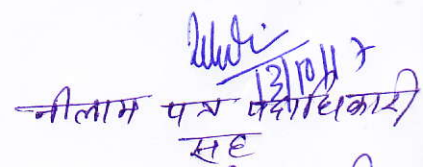 13/10/17
नीलाम पत्र पदाधिकारी
सह